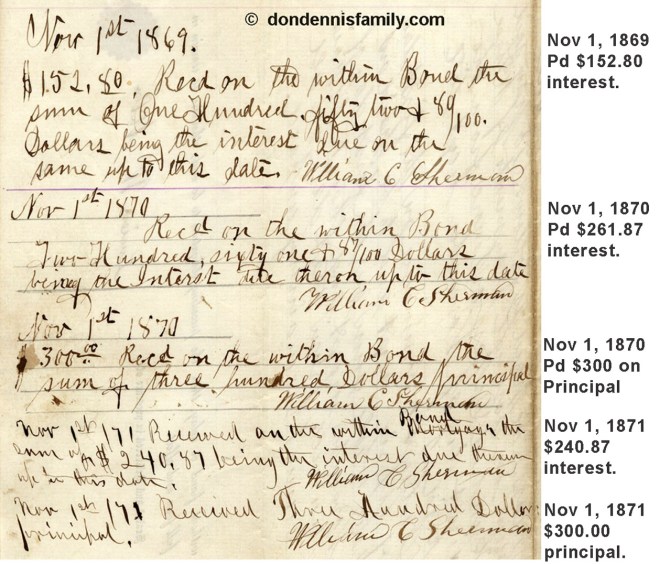 © dondennisfamily.com
Nov 1st 1869.
$152.80. Recd on the within Bond the
sum of One Hundred, fifty two & 80/100.
Dollars being the interest due on the
same up to this date. William C Sherman
Nov 1st 1870
Recd on the within Bond
Two Hundred, sixty one & 87/100 Dollars
being the Interst due theron up to this date
William C Sherman
Nov 1st 1870
$300.00 Recd on the within Bond the
sum of three hundred Dollars principal
William C Sherman
Nov 1st 171 Received on the within Bond Mortgage the
sum of $240.87 being the interest due thereon
up to this date. William C Sherman
Nov 1st 171 Received Three Hundred Dollars
principal. William C Sherman
Nov 1, 1869
Pd $152.80
interest.
Nov 1, 1870
Pd $261.87
interest.
Nov 1, 1870
Pd $300 on
Principal
Nov 1, 1871
$240.87
interest.
Nov 1, 1871
$300.00
principal.